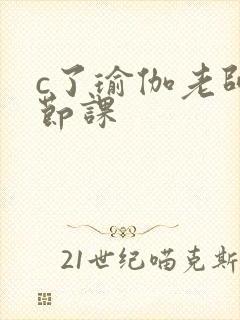 c了瑜伽老師
節課
21世纪喵克斯